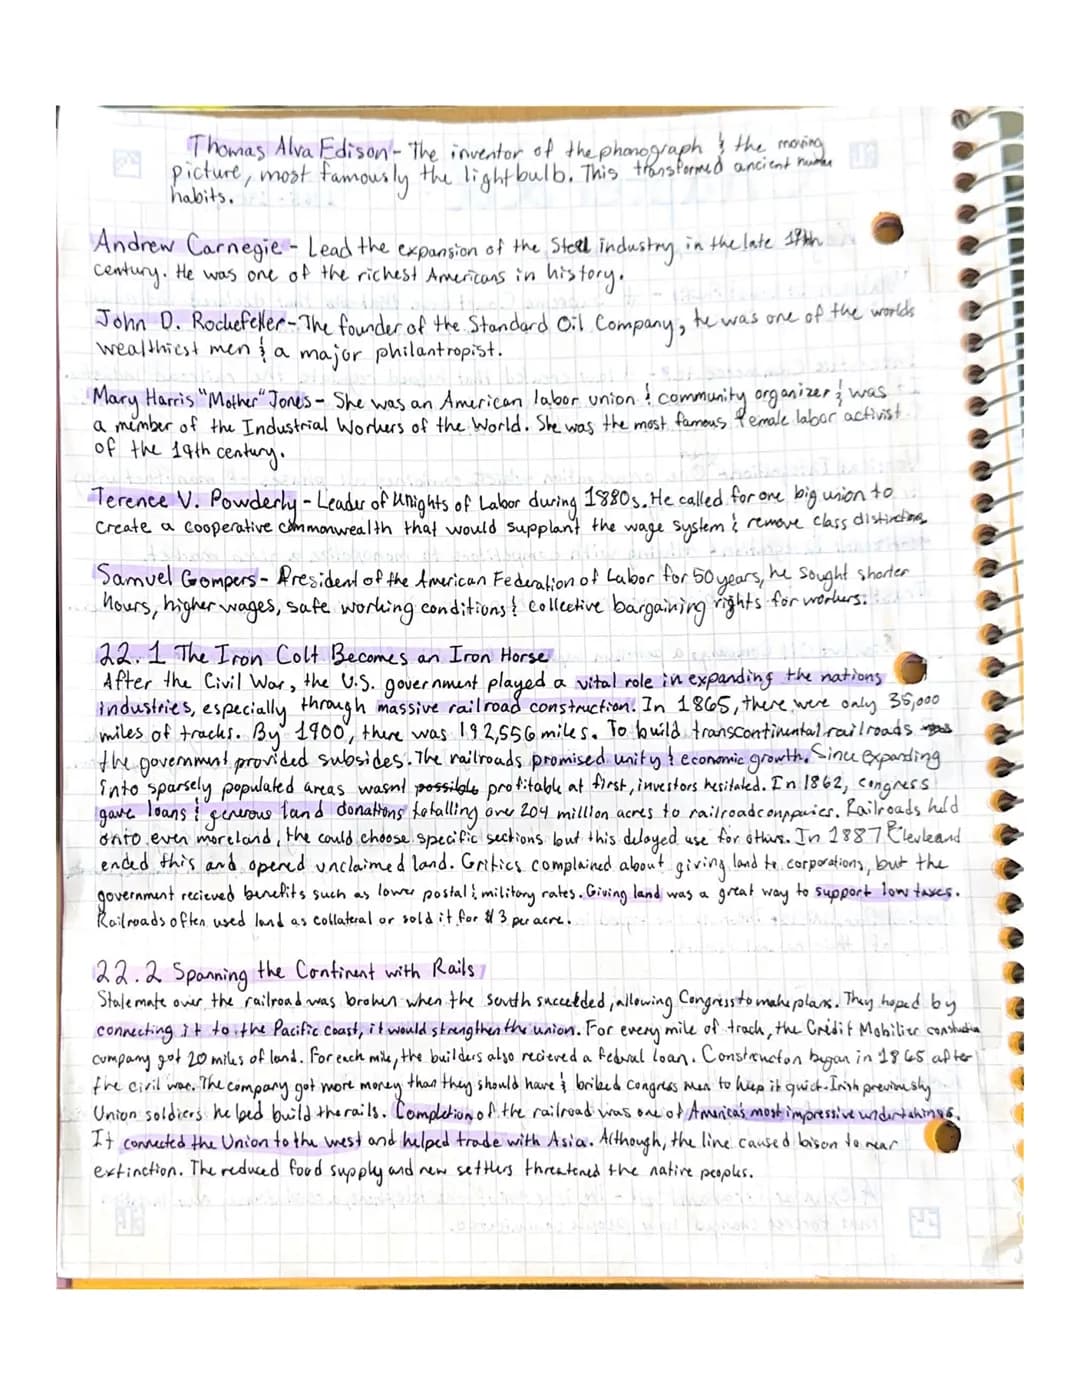 Thomas Alva Edison - The inventor of the phonograph & the moving
picture, most famously the lightbulb. This transformed ancient human
habits.
Andrew Carnegie - Lead the expansion of the Steel industry in the late 19th
century. He was one of the richest Americans in history.
John D. Rockefeller - The founder of the Standard Oil Company, he was one of the worlds
wealthiest men & a major philantropist.
Mary Harris "Mother" Jones - She was an American labor union & community organizer & was
a member of the Industrial Workers of the World. She was the most famous female labor activist
of the 19th century.
Terence V. Powderly - Leader of Knights of Labor during 1880s. He called for one big union to
create a cooperative commonwealth that would supplant the wage system & remove class distinctions
Samuel Gompers - President of the American Federation of Labor for 50 years, he sought shorter
hours, higher wages, safe working conditions & collective bargaining rights for workers.
22.1 The Iron Colt Becomes an Iron Horse
After the Civil War, the U.S. government played a vital role in expanding the nations
industries, especially through massive railroad construction. In 1865, there were only 35,000
miles of tracks. By 1900, there was 192,556 miles. To build transcontinental railroads
the government provided subsides. The railroads promised unity & economic growth. Since expanding
into sparsely populated areas wasnt possible profitable at first, investors hesitated. In 1862, congress
gave loans & generous land donations totalling over 204 million acres to railroad companies. Railroads held
onto even more land, the could choose specific sections but this delayed use for others. In 1887 Clevleand
ended this and opened unclaimed land. Critics complained about giving land to corporations, but the
government recieved benefits such as lower postal & military rates. Giving land was a great way to support low taxes.
Railroads often used land as collateral or sold it for $3 per acre.
22.2 Spanning the Continent with Rails
Stalemate over the railroad was broken when the south succeeded, allowing Congress to make plans. They hoped by
connecting it to the Pacific coast, it would strengthen the union. For every mile of track, the Crédit Mobilier construction
company got 20 miles of land. For each mile, the builders also recieved a federal loan. Construncton began in 1865 after
the civil war. The company got more money than they should have & bribed Congress men to keep it quiet. Irish previously
Union soldiers helped build the rails. Completion of the railroad was one of America's most impressive undertakings.
It connected the Union to the west and helped trade with Asia. Although, the line caused bison to near
extinction. The reduced food supply and new settlers threatened the native peoples.